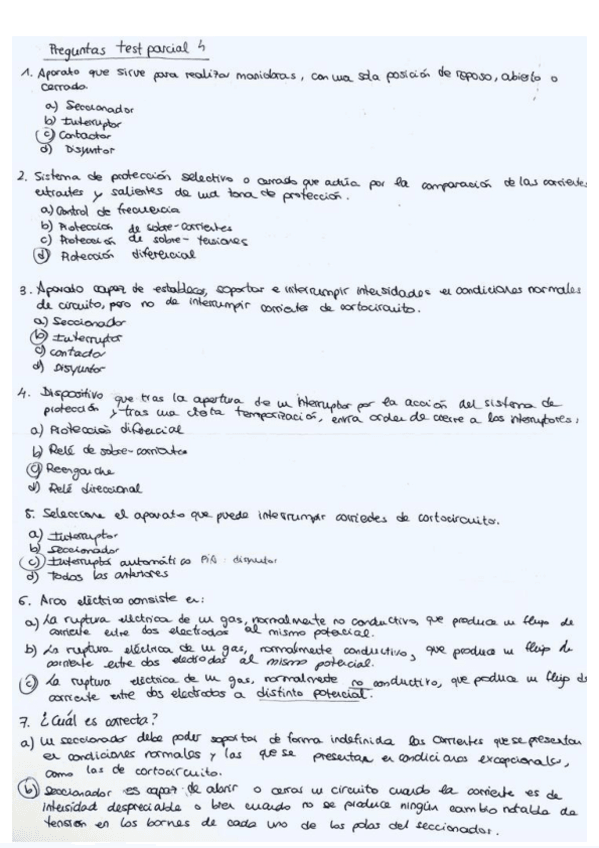 Preguntas test parcial 4
1. Aparato que sirve para realizar maniobras, con una sola posición de reposo, abierto o
cerrado.
a) Seccionador
b) Interruptor
c) Contactor
d) Disyuntor
2. Sistema de protección selectivo o cerrado que actúa por la comparación de las corrientes
entrantes y salientes de una zona de protección.
a) Control de frecuencia
b) Protección de sobre-corrientes
c) Protección de sobre-tensiones
d) Protección diferencial
3. Aparato capaz de establecer, soportar e interrumpir intensidades en condiciones normales
de circuito, pero no de interrumpir corrientes de cortocircuito.
a) Seccionador
b) Interruptor
c) contactor
d) Disyuntor
4. Dispositivo que tras la apertura de un interruptor por la acción del sistema de
protección y tras una cierta temporización, envia orden de cierre a los interruptores:
a) Protección diferencial
b) Relé de sobre-corriente
c) Reenganche
d) Relé direccional
5. Seleccione el aparato que puede interrumpir corrientes de cortocircuito.
a) Interruptor
b) Seccionador
c) Interruptor automático PIA: disyuntor
d) Todas las anteriores
6. Arco eléctrico consiste en:
a) La ruptura eléctrica de un gas, normalmente no conductivo, que produce un flujo de
corriente entre dos electrodos al mismo potencial.
b) La ruptura eléctrica de un gas, normalmente conductivo, que produce un flujo de
corriente entre dos electrodos al mismo potencial.
c) La ruptura eléctrica de un gas, normalmente no conductivo, que produce un flujo de
corriente entre dos electrodos a distinto potencial.
7. ¿Cuál es correcta?
a) Un seccionador debe poder soportar de forma indefinida las corrientes que se presentan
en condiciones normales y las que se presentan en condiciones excepcionales,
como las de cortocircuito.
b) Seccionador es capaz de abrir o cerrar un circuito cuando la corriente es de
intensidad despreciable o bien cuando no se produce ningún cambio notable de
tensión en los bornes de cada uno de los polos del seccionador.